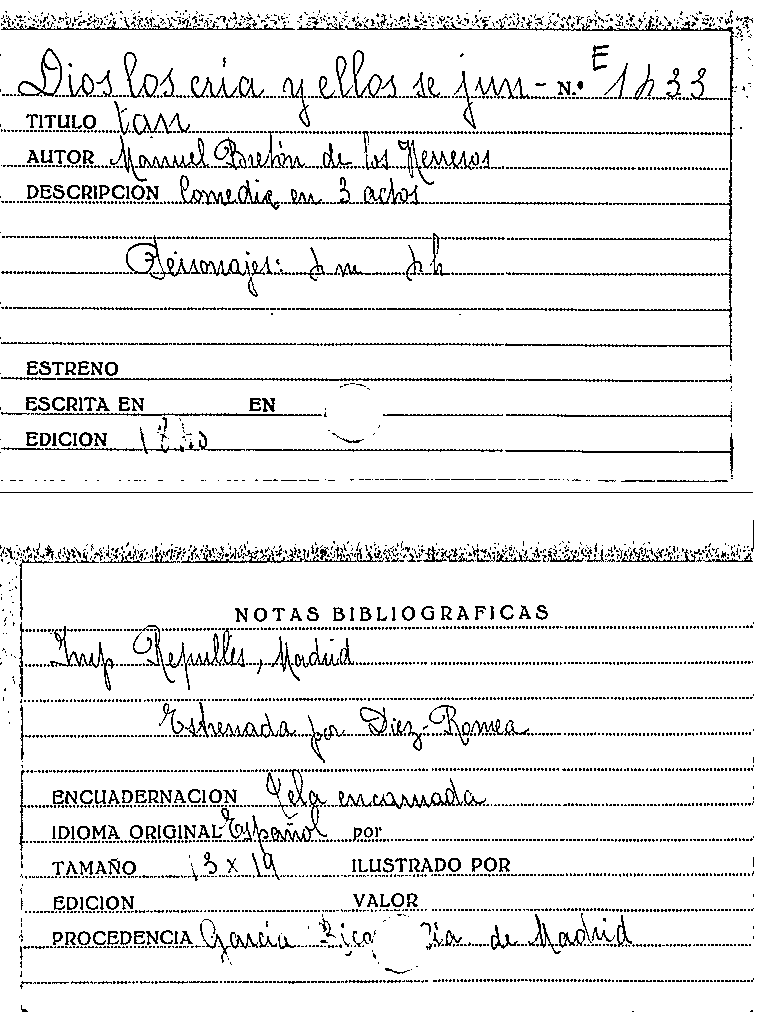 Dios los cría y ellos se jun- N.º E
TITULO tan
AUTOR Manuel Bretón de los Herreros
DESCRIPCION Comedia en 3 actos
Personajes:
ESTRENO
ESCRITA EN EN
EDICION
NOTAS BIBLIOGRAFICAS
Imp Repullés, Madrid
Estrenada por Diez-Romea
ENCUADERNACION Tela encarnada
IDIOMA ORIGINAL Español por
TAMAÑO 13 x 19 ILUSTRADO POR
EDICION VALOR
PROCEDENCIA García de Madrid